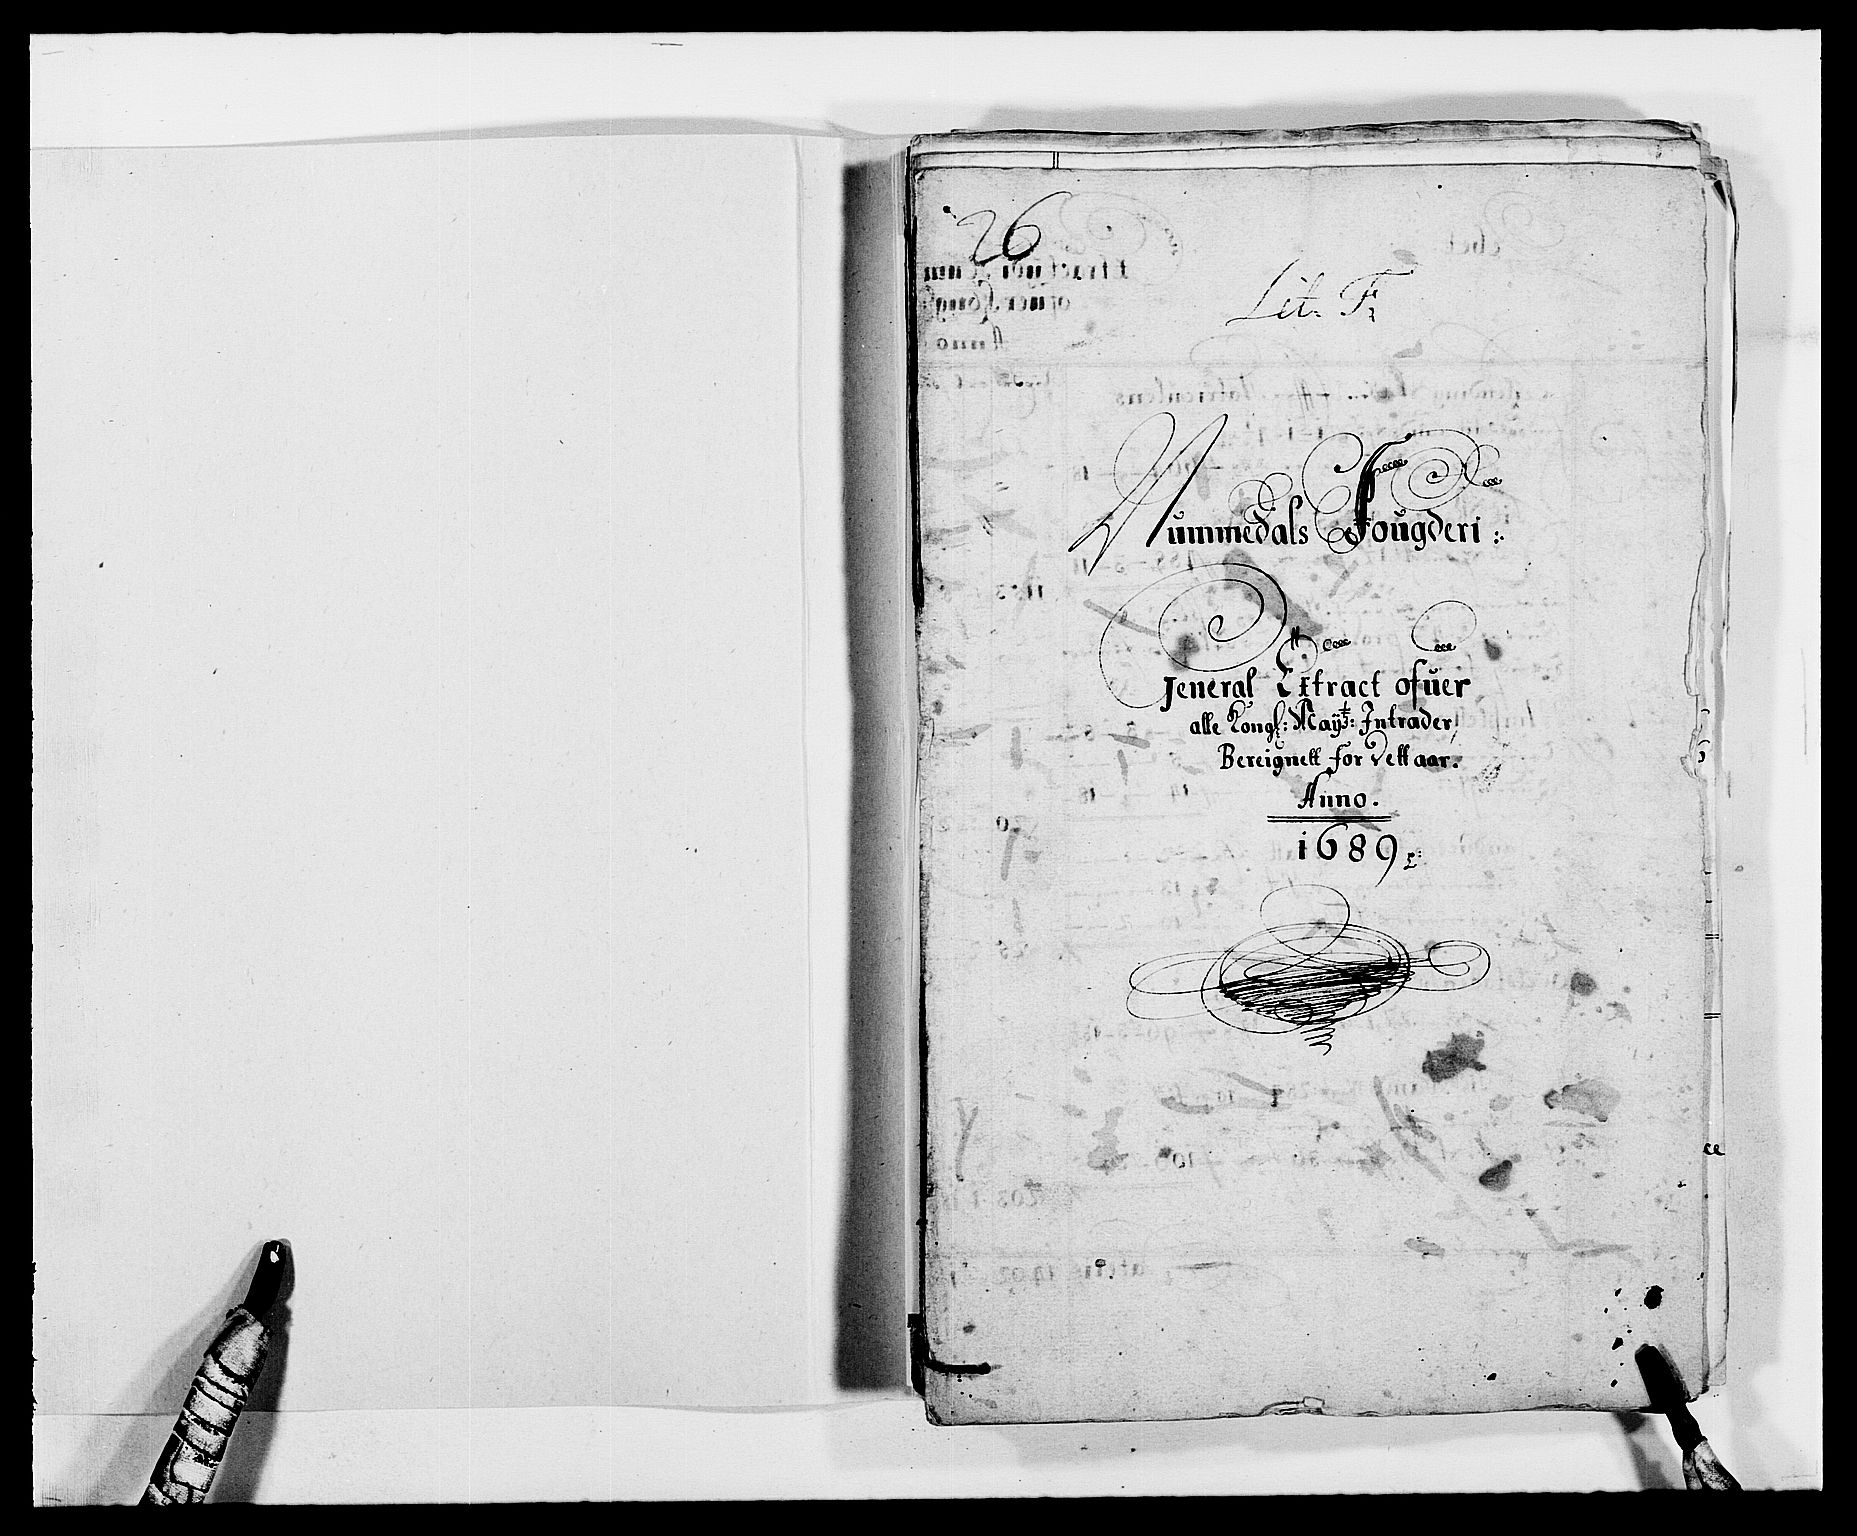 26
Lit: F:
Nummedals Fougderi:
General Extract ofuer
alle Kongl: Mayts: Intrader
Bereignett for dett aar.
Anno.
1689